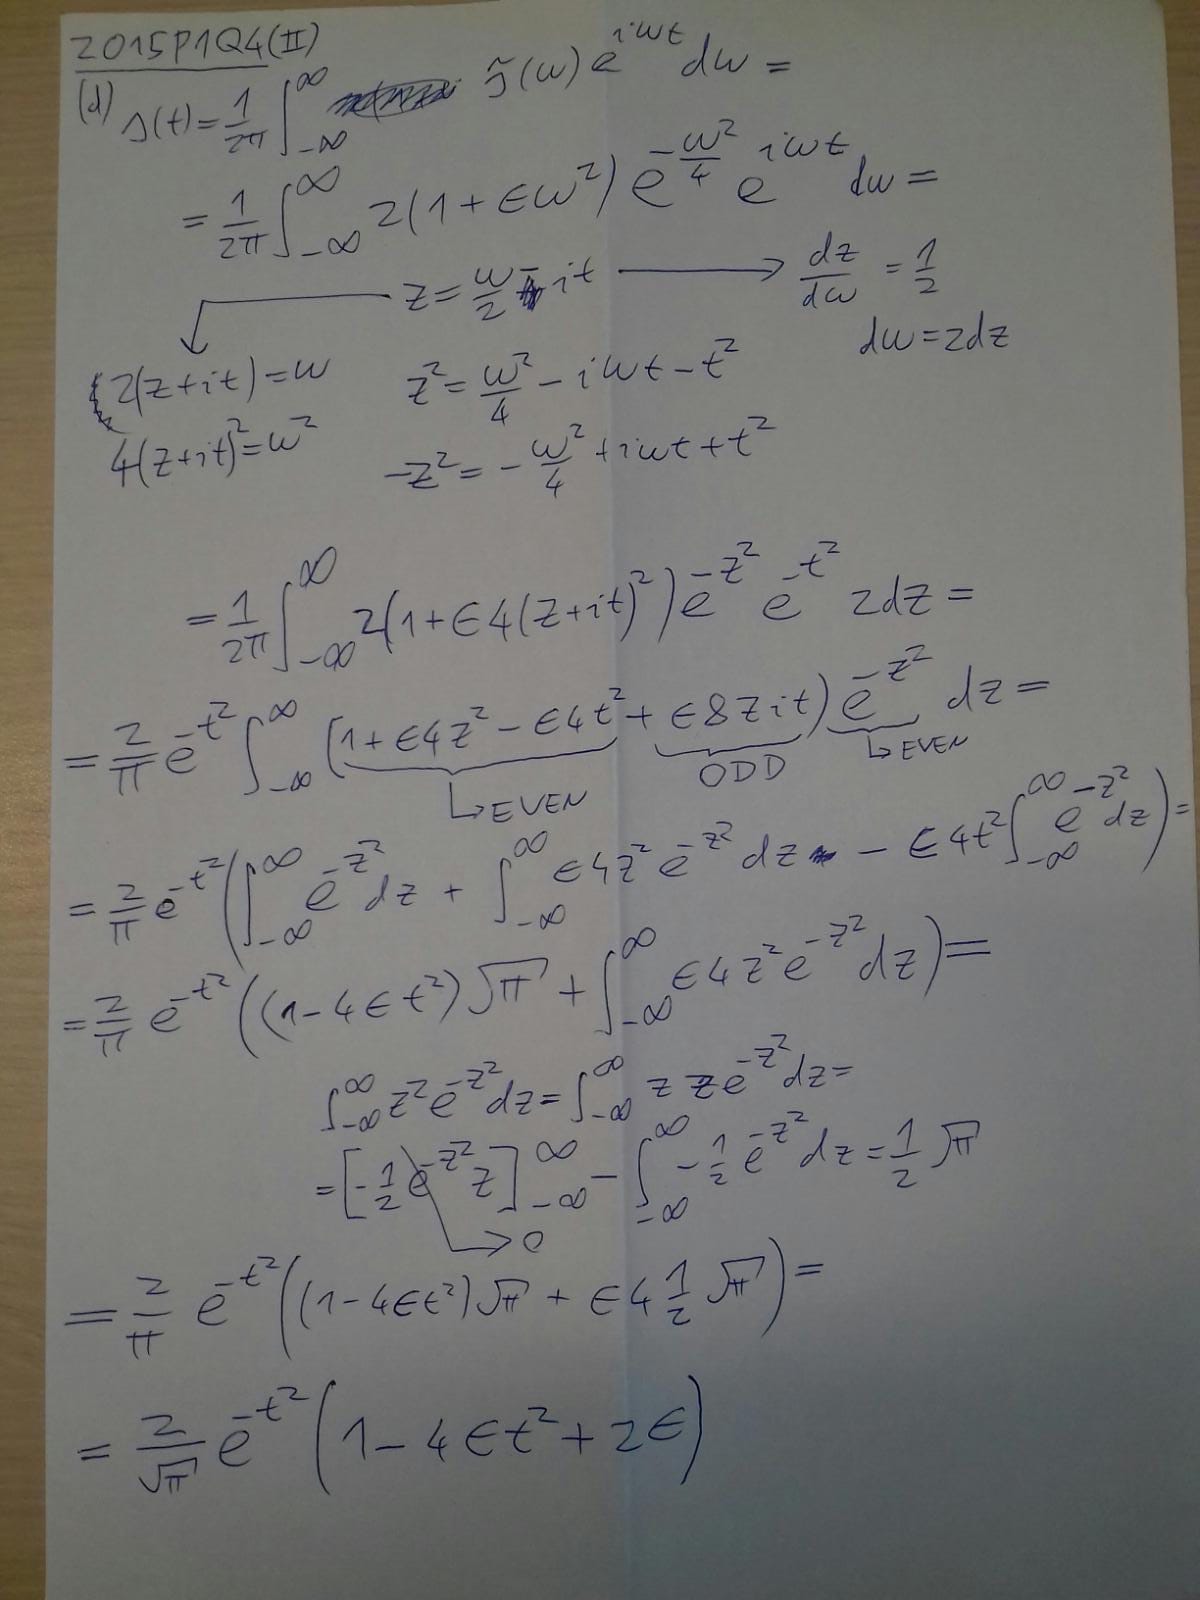 2015P1Q4(II)
(d) s(t) = 1/2π ∫_{-∞}^{∞} s̃(ω) e^{iωt} dω =
= 1/2π ∫_{-∞}^{∞} 2(1 + ϵω²) e^{-ω²/4} e^{iωt} dω =
z = ω/2 - it → dz/dω = 1/2
dω = 2dz
2(z+it) = ω
z² = ω²/4 - iωt - t²
4(z+it)² = ω²
-z² = -ω²/4 + iωt + t²
= 1/2π ∫_{-∞}^{∞} 2(1 + ϵ4(z+it)²) e^{-z²} e^{-t²} 2dz =
= 2/π e^{-t²} ∫_{-∞}^{∞} (1 + ϵ4z² - ϵ4t² + ϵ8zit) e^{-z²} dz =
↳ EVEN ODD ↳ EVEN
= 2/π e^{-t²} (∫_{-∞}^{∞} e^{-z²} dz + ∫_{-∞}^{∞} ϵ4z² e^{-z²} dz - ϵ4t² ∫_{-∞}^{∞} e^{-z²} dz) =
= 2/π e^{-t²} ((1 - 4ϵt²) √π + ∫_{-∞}^{∞} ϵ4z² e^{-z²} dz) =
∫_{-∞}^{∞} z² e^{-z²} dz = ∫_{-∞}^{∞} z z e^{-z²} dz =
= [-1/2 e^{-z²} z]_{-∞}^{∞} - ∫_{-∞}^{∞} -1/2 e^{-z²} dz = 1/2 √π
→ 0
= 2/π e^{-t²} ((1 - 4ϵt²) √π + ϵ4 1/2 √π) =
= 2/√π e^{-t²} (1 - 4ϵt² + 2ϵ)